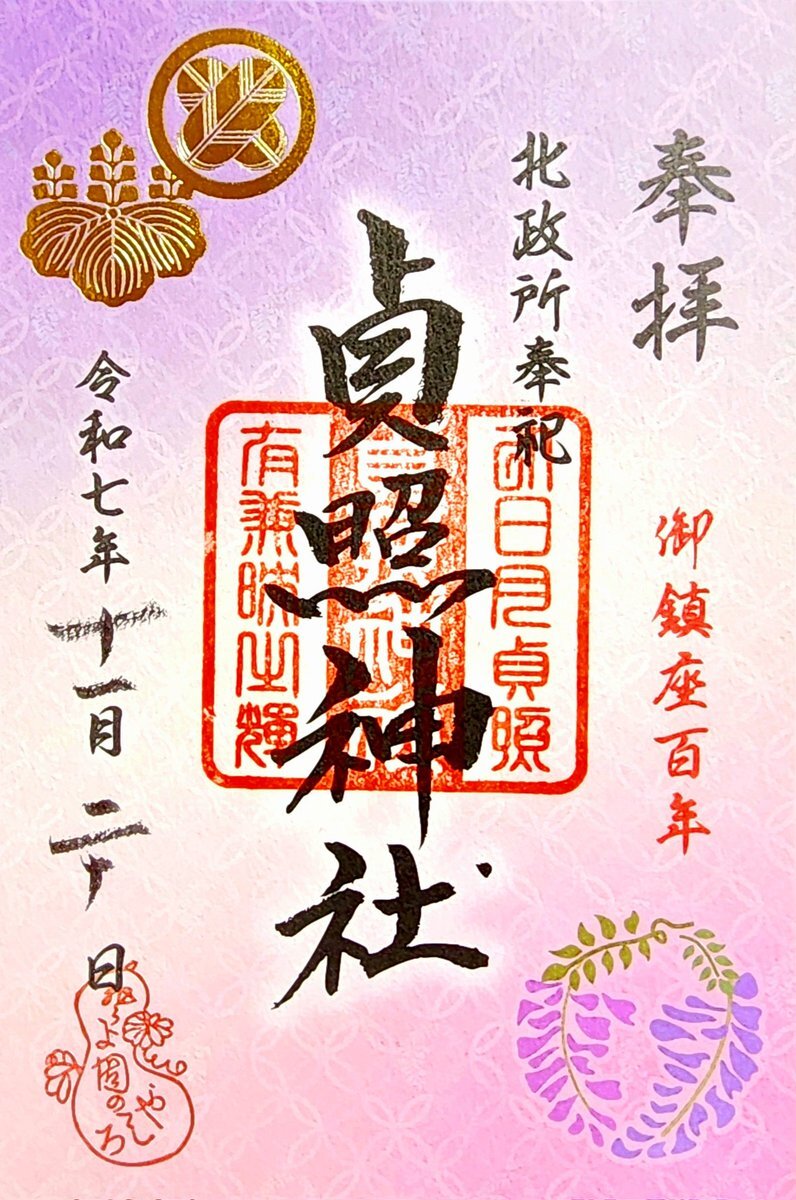 奉拝
御鎮座百年
北政所奉祀
貞照神社
日月貞照
有兼之輝
令和七年十一月二十日
よ国のやしろ